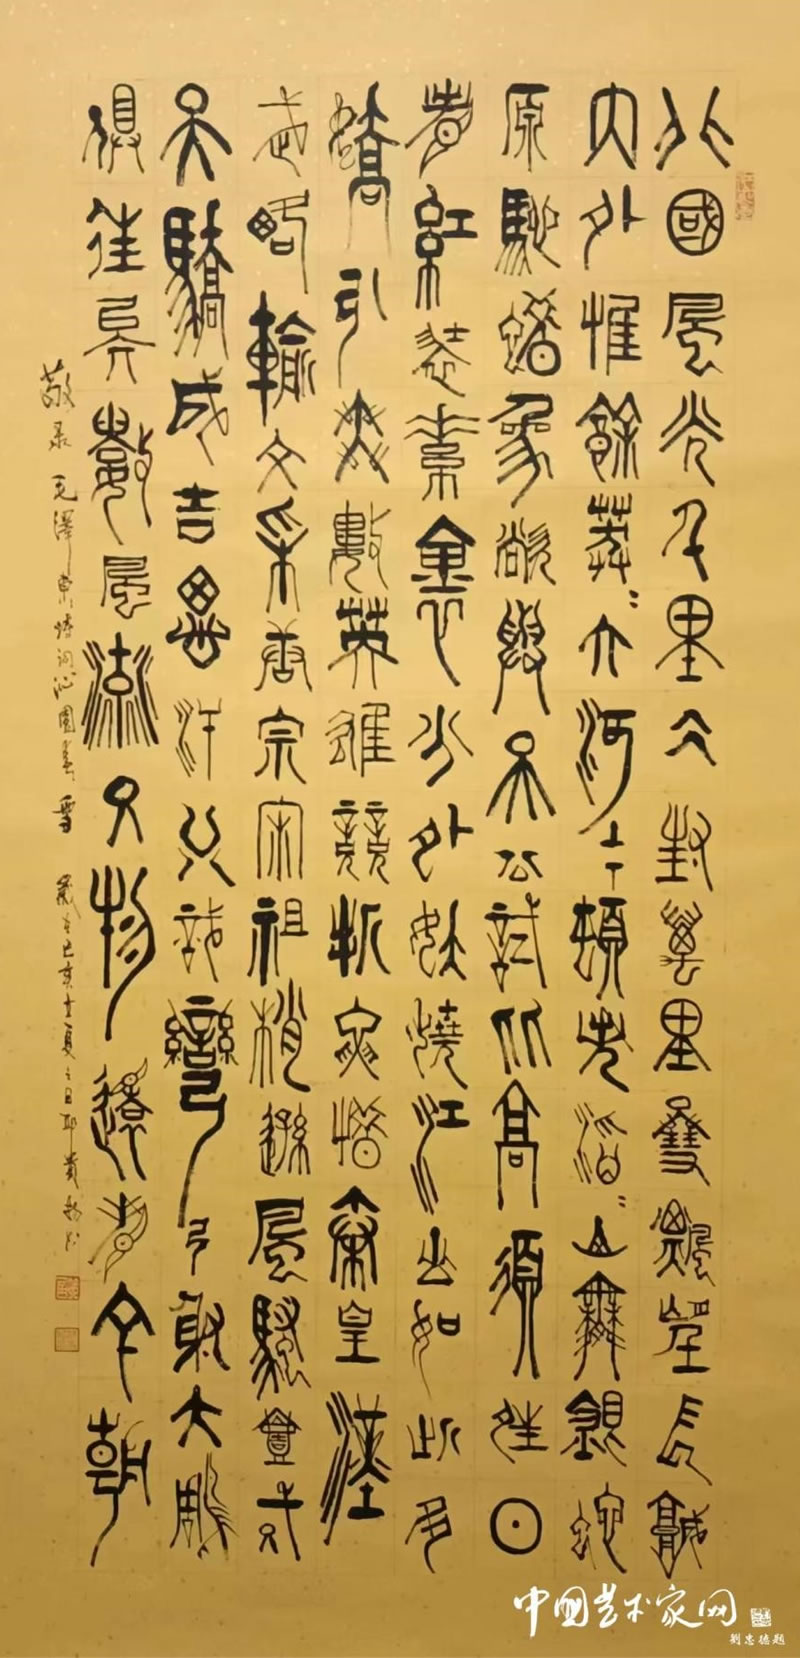 北國風光千里冰封萬里雪飄望長城
內外惟餘莽〻大河上下頓失滔〻山舞銀蛇
原馳蠟象欲與天公試比高須晴日
看紅裝素裹分外妖嬈江山如此多
嬌引無數英雄競折腰惜秦皇漢
武略輸文采唐宗宋祖稍遜風騷一代
天驕成吉思汗只識彎弓射大雕
俱往矣數風流人物還看今朝
敬录毛澤東詩詞沁園春 雪 歲在己亥
中国艺术家网
劉忠德題